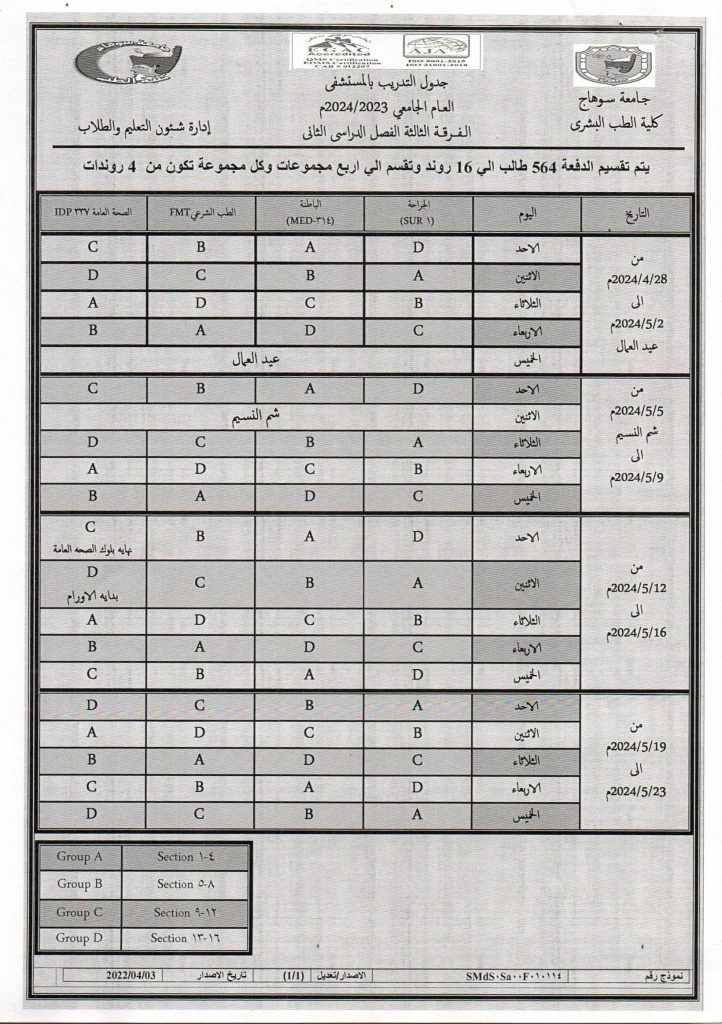 جامعة سوهاج
كلية الطب البشرى
EGAC
Accredited
QMS Certification
EOIMS Certification
CAB # 012207
AJA
ISO 9001:2015
ISO 21001:2018
جدول التدريب بالمستشفى
العام الجامعي 2024/2023م
الفرقة الثالثة الفصل الدراسى الثانى
جامعة سوهاج
كلية الطب
إدارة شئون التعليم والطلاب
يتم تقسيم الدفعة 564 طالب الي 16 روند وتقسم الي اربع مجموعات وكل مجموعة تكون من 4 روندات
التاريخ اليوم الجراحة (SUR ١) الباطنة (MED-٣١٤) الطب الشرعي FMT الصحة العامة IDP ٣٣٧
من 2024/4/28م الى 2024/5/2م عيد العمال
الاحد D A B C
الاثنين A B C D
الثلاثاء B C D A
الاربعاء C D A B
الخميس عيد العمال
من 2024/5/5م شم النسيم الى 2024/5/9م
الاحد D A B C
الاثنين شم النسيم
الثلاثاء A B C D
الاربعاء B C D A
الخميس C D A B
من 2024/5/12م الى 2024/5/16م
الاحد D A B C نهايه بلوك الصحه العامة
الاثنين A B C D بدايه الاورام
الثلاثاء B C D A
الاربعاء C D A B
الخميس D A B C
من 2024/5/19م الى 2024/5/23م
الاحد A B C D
الاثنين B C D A
الثلاثاء C D A B
الاربعاء D A B C
الخميس A B C D
Group A Section ١-٤
Group B Section ٥-٨
Group C Section ٩-١٢
Group D Section ١٣-١٦
نموذج رقم SMdS٠Sa٠٠F٠١٠١١٤ الاصدار/تعديل (1/1) تاريخ الاصدار 2022/04/03